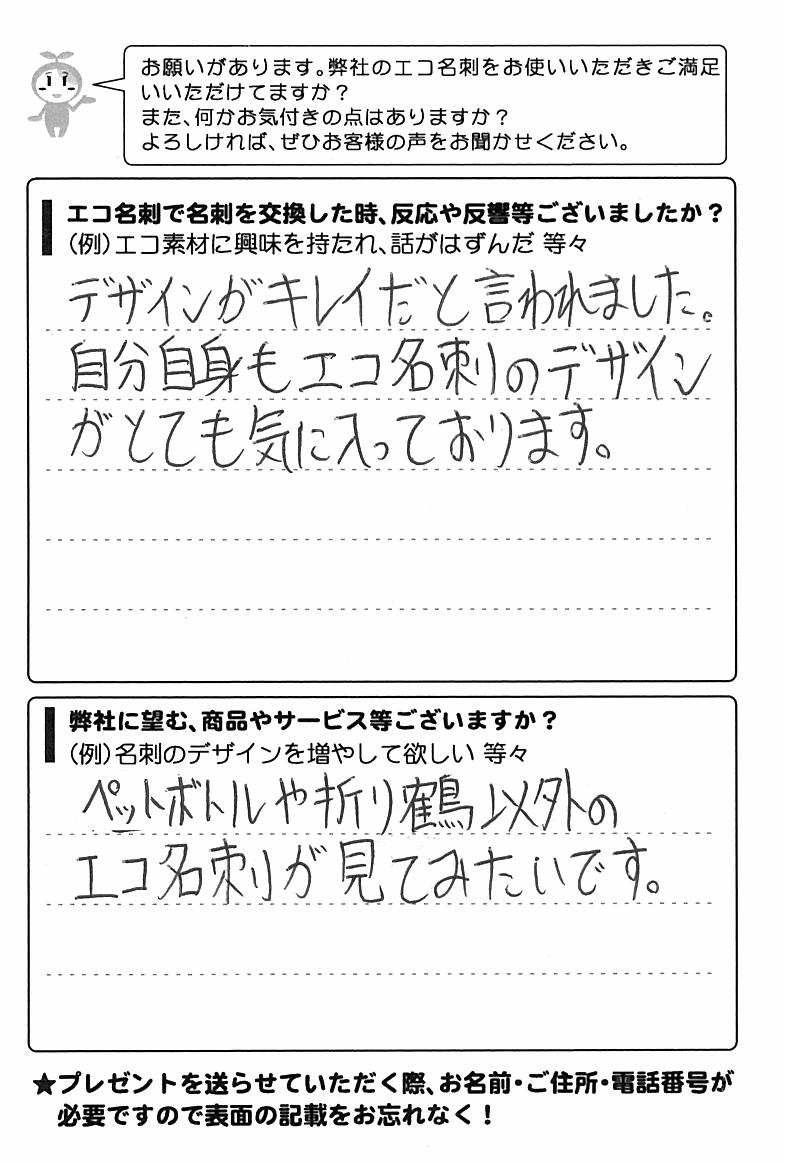 お願いがあります。弊社のエコ名刺をお使いいただきご満足
いいただけてますか？
また、何かお気付きの点はありますか？
よろしければ、ぜひお客様の声をお聞かせください。
エコ名刺で名刺を交換した時、反応や反響等ございましたか？
（例）エコ素材に興味を持たれ、話がはずんだ 等々
デザインがキレイだと言われました。
自分自身もエコ名刺のデザイン
がとても気に入っております。
弊社に望む、商品やサービス等ございますか？
（例）名刺のデザインを増やして欲しい 等々
ペットボトルや折り鶴以外の
エコ名刺が見てみたいです。
★プレゼントを送らせていただく際、お名前・ご住所・電話番号が
必要ですので表面の記載をお忘れなく！